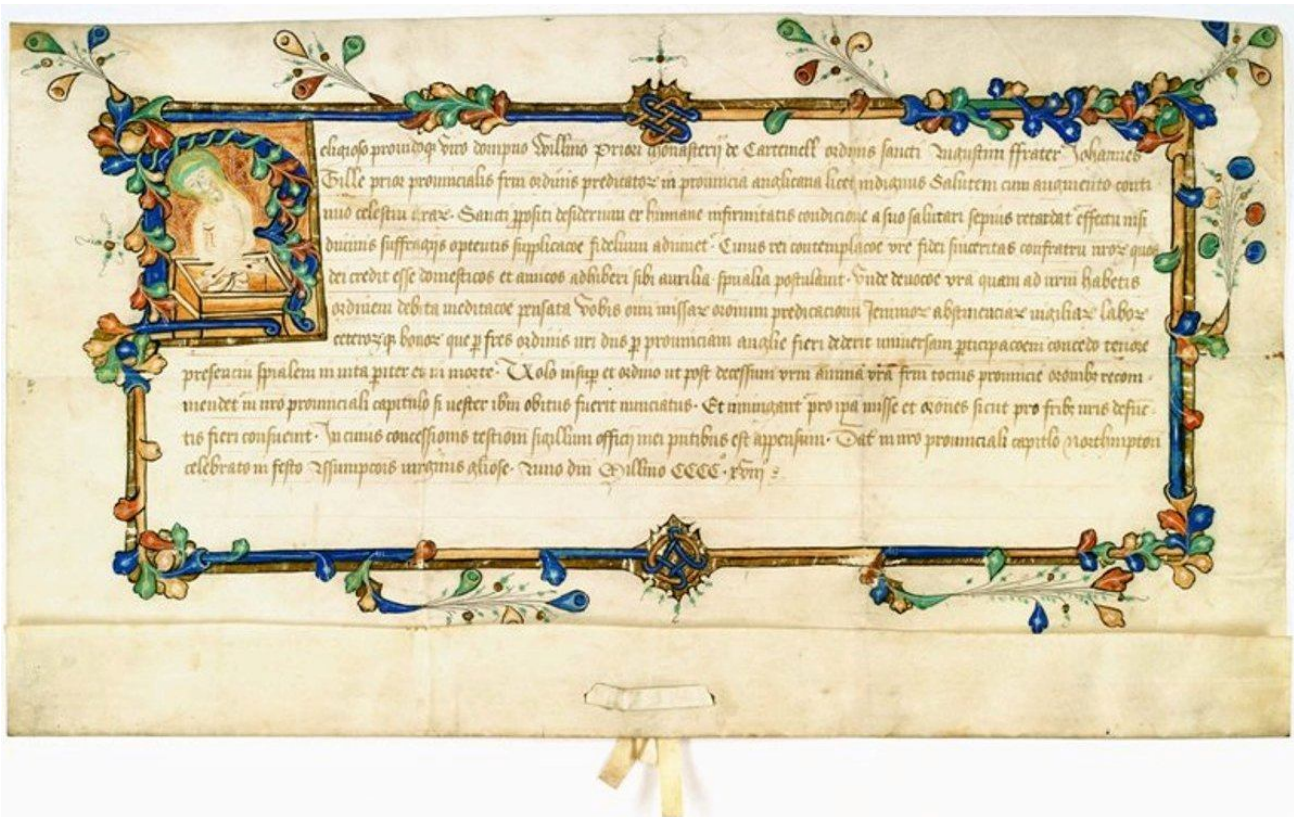 Religioso providoq viro dompno Willmo Priori Monasterij de Cartemell ordinis sancti Augustini ffrater Johannes
Tille prior provincialis frm ordinis preditatoz in provincia anglicana licet indignus Salutem cum augmento conti
nuo celestiu graz. Sancti ppositi desiderium ex humane infirmitatis condicione a suo salutari sepius retardat effectu nisi
divinis suffragijs optentis supplicacoe fidelium adiuvet. Cuius rei contemplacoe vre fidei sinceritas confratru nroz quos
dei credit esse domesticos et amicos adhiberi sibi auxilia spualia postulavit. Unde devocoe vra quam ad nrm habetis
ordinem debita meditacoe pensata Vobis oim missaz oronum predicacionu Jeiunioz abstinenciaz vigiliaz laboz
ceterozq bonoz que p fres ordinis nri dns p provinciam anglie fieri dederit universam pticipacoem concedo tenore
presenciu spualem in vita piter et in morte. Volo insup et ordino ut post decessum vrm anima vra frm tocius provincie oronibz recom
mendet in nro provinciali capitulo si vester ibm obitus fuerit nunciatus. Et iniungant pro ipa misse et orones sicut pro fribz nris defunc
tis fieri consuevit. In cuius concessionis testiom sigillum officij mei putibus est appensum. Dat in nro provinciali capitlo Northmpton
celebrato in festo Assumpcois virginis gliose. Anno dni Millmo CCCCo. xviijo